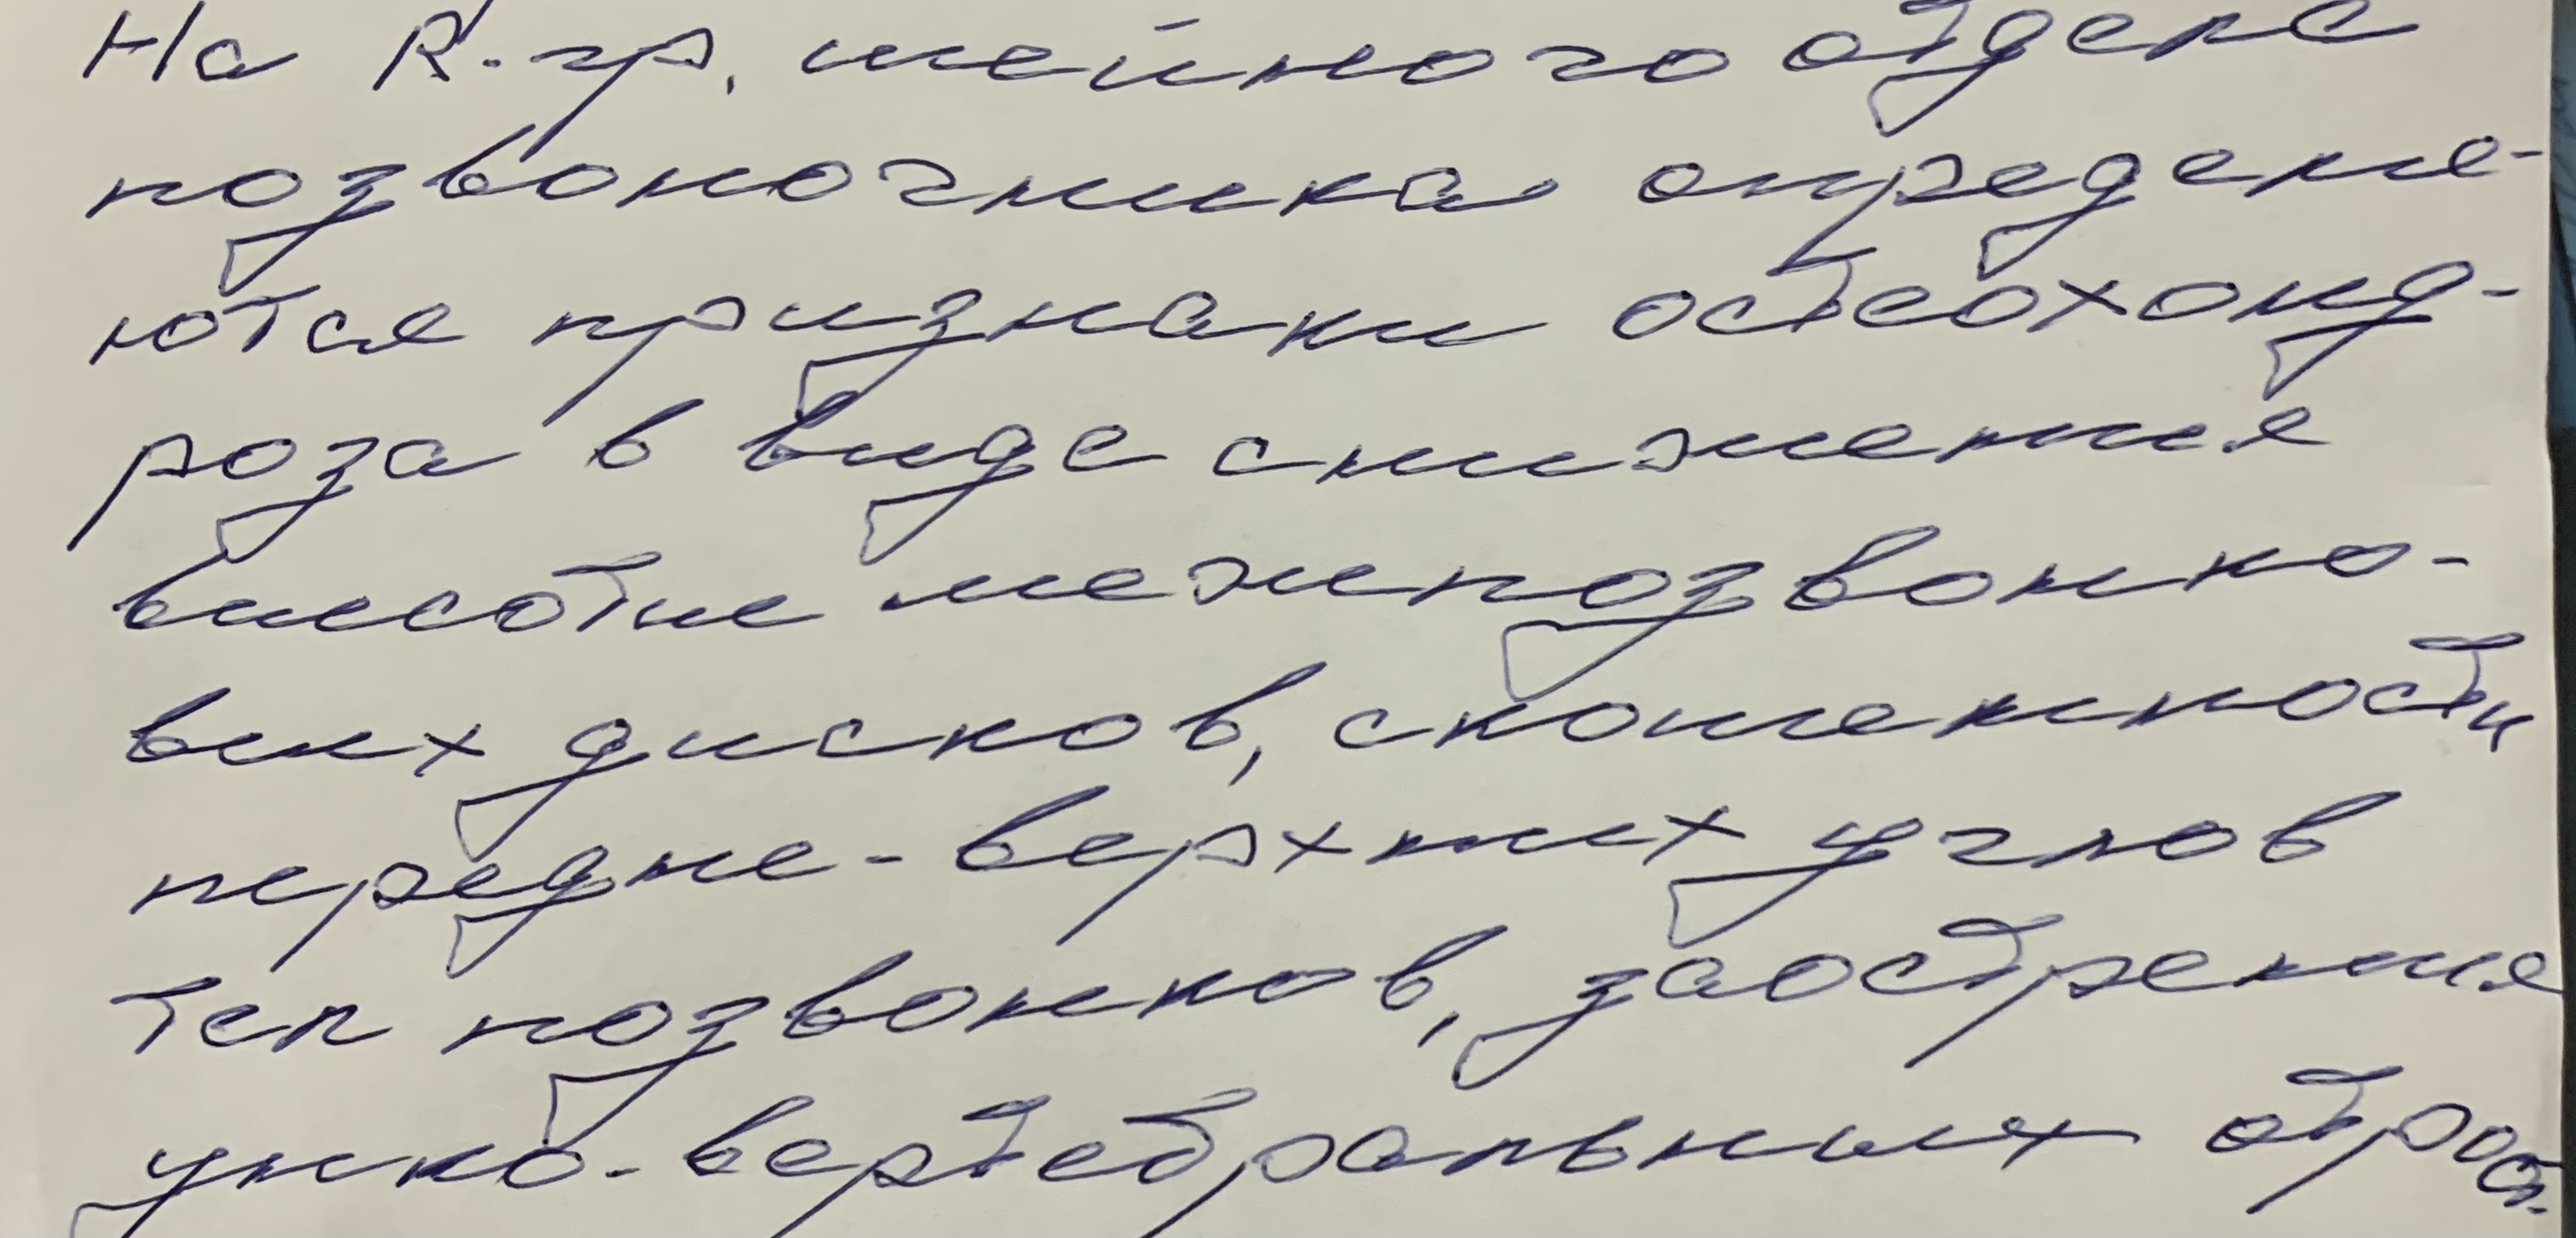 На R-гр. шейного отдела
позвоночника определя-
ются признаки остеохонд-
роза в виде снижения
высоты межпозвонко-
вых дисков, скошенности
передне-верхних углов
тел позвонков, заострения
унко-вертебральных отрост.